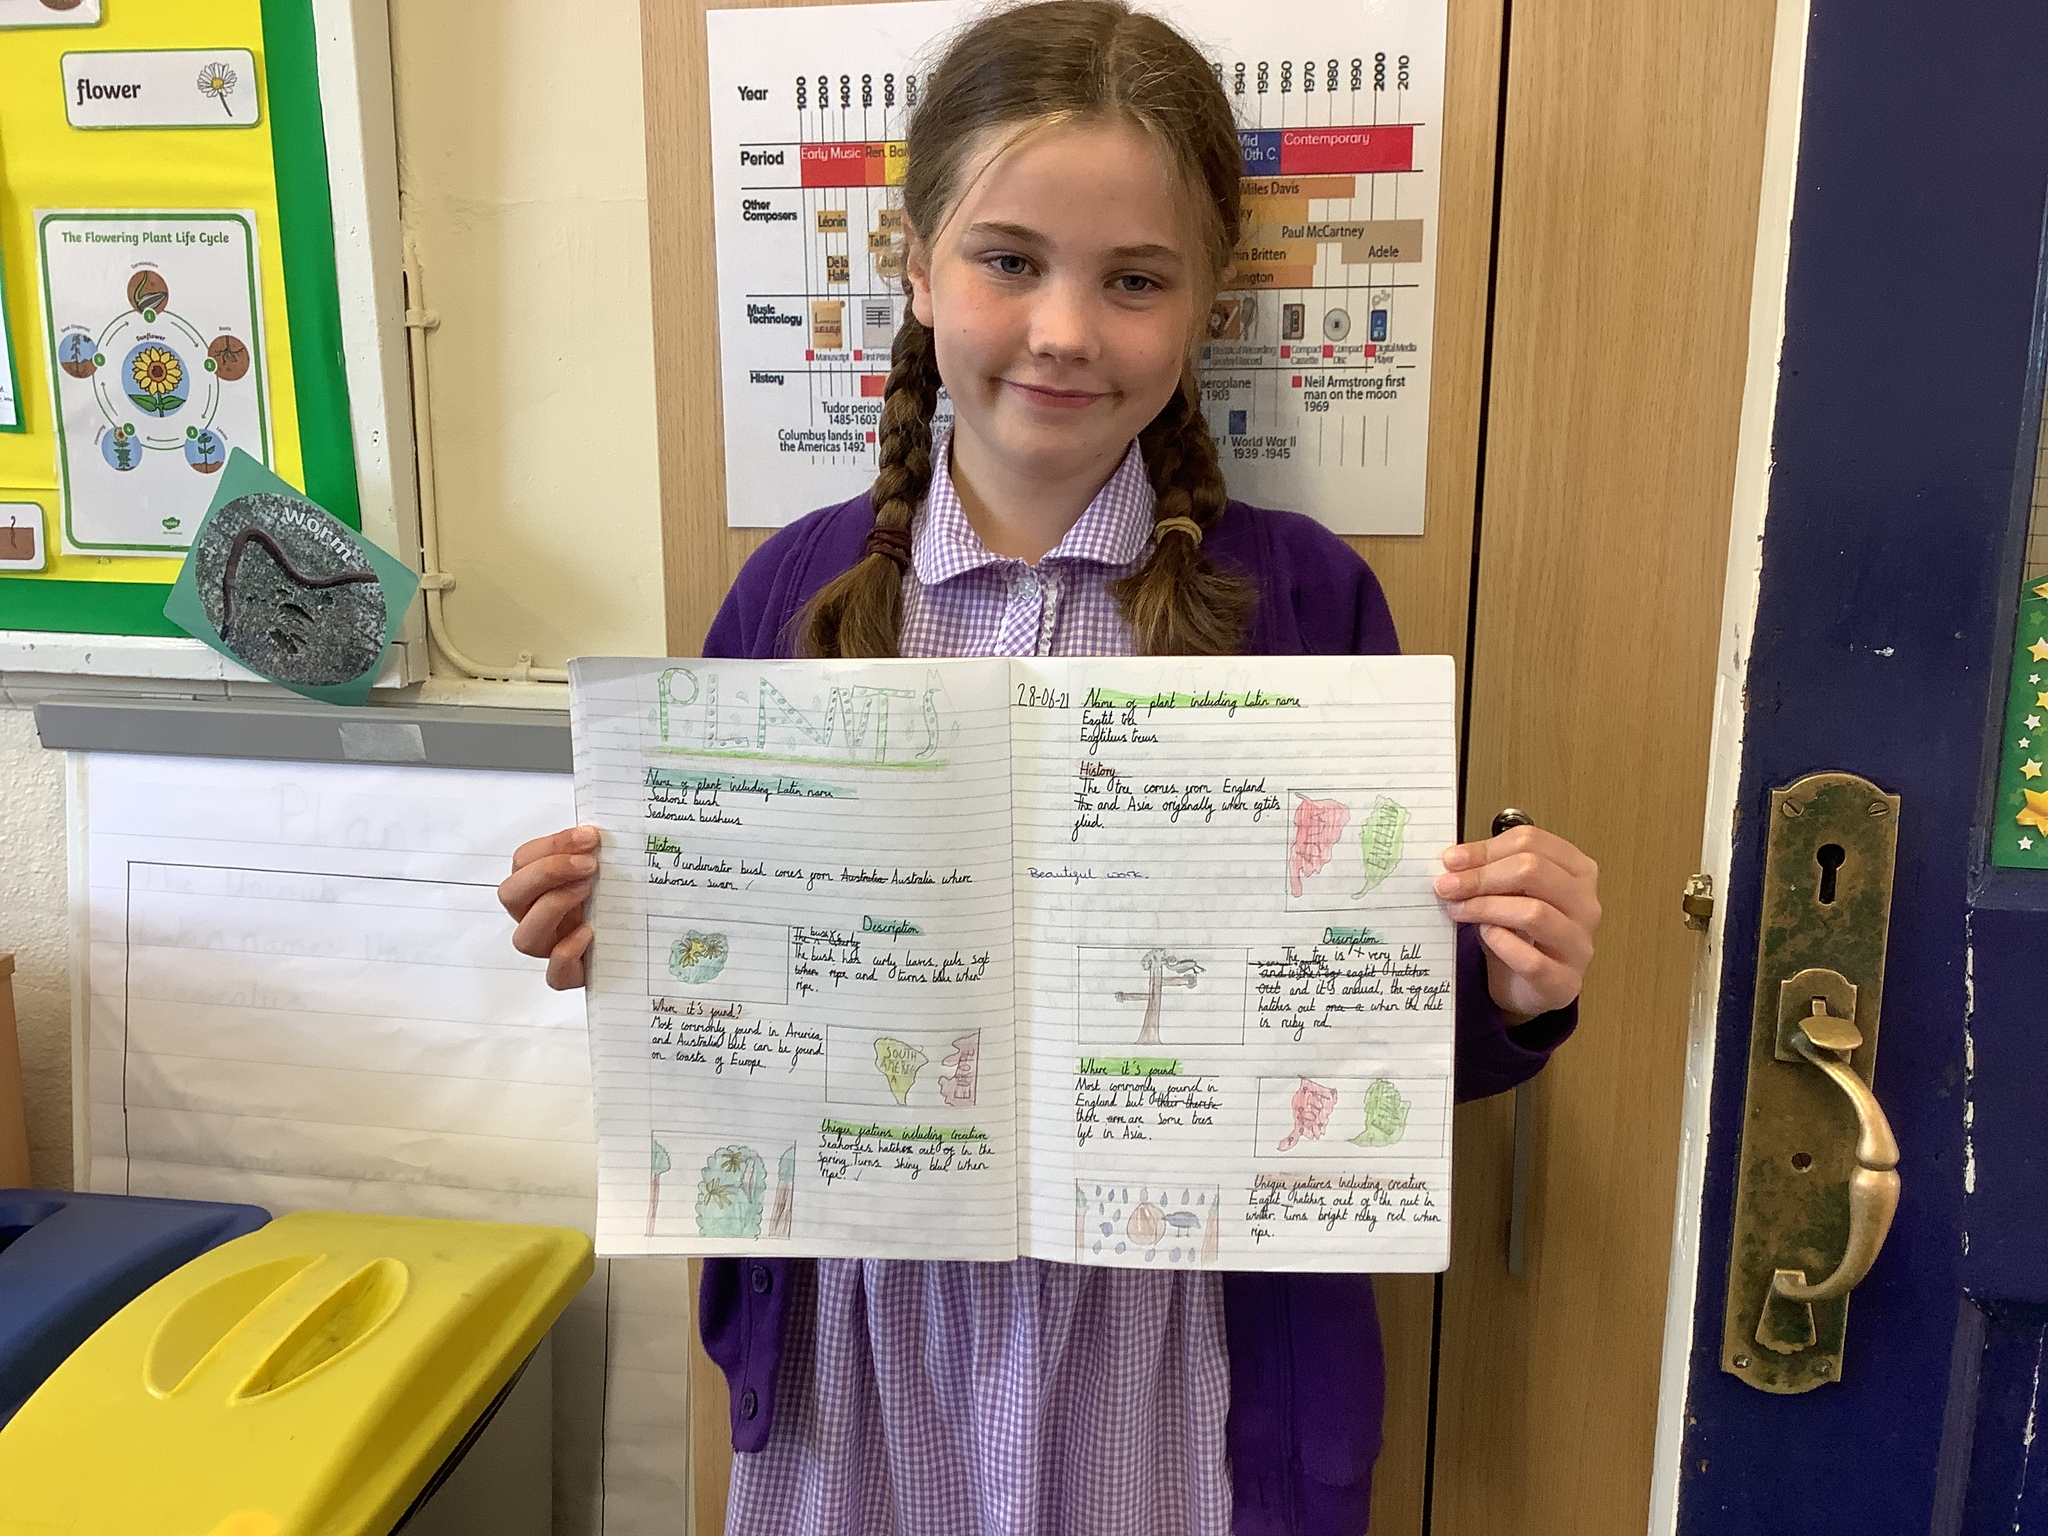 flower
The Flowering Plant Life Cycle
Germination
Roots
Leaves
Flowering
Seed Dispersal
Sunflower
1
2
3
4
5
worm
Year
1000
1200
1400
1500
1600
1650
1940
1950
1960
1970
1980
1990
2000
2010
Period
Early Music
Ren.
Mid
20th C.
Contemporary
Other
Composers
Léonin
De la
Halle
Miles Davis
Paul McCartney
Britten
Adele
Music
Technology
Manuscript
Compact
Cassette
Compact
Disc
Digital Media
Player
History
Tudor period
1485-1603
Columbus lands in
the Americas 1492
aeroplane
1903
Neil Armstrong first
man on the moon
1969
World War II
1939 -1945
PLANTS
Name of plant including Latin name
Seahorse bush
Seahorseus busheus
History
The underwater bush comes from Australia Australia where
Seahorses swam.
Description
The bush curly
The bush has curly leaves, feels soft
when ripe and turns blue when
ripe.
Where it's found?
Most commonly found in America
and Australia but can be found
on coasts of Europe.
SOUTH
AMERIC
A
EUROPE
Unique features including creature
Seahorses hatches out of in the
Spring. Turns Shiny blue when
ripe.
28-06-21
Name of plant including Latin name
Eagtit tree
Eagtitius treus
History
The tree comes from England
The and Asia originally where egtits
flied.
ASIA
ENGLAND
Beautiful work.
Description
The tree is very tall
eagtit hatches
out and it's annual, the eg eagtit
hatches out once a when the nut
is ruby red.
Where it's found
Most commonly found in
England but
there are are some trees
left in Asia.
ASIA
Unique features including creature
Eagtit hatches out of the nut in
winter. Turns bright ruby red when
ripe.